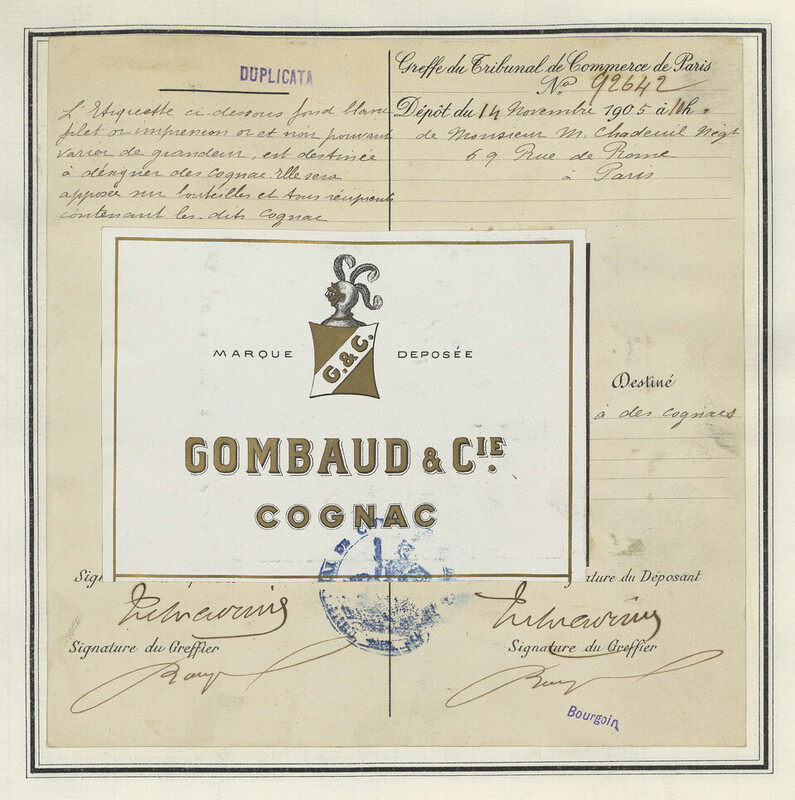 DUPLICATA
L'Etiquette ci-dessous fond blanc
filet or impression or et noir pouvant
varier de grandeur, est destinée
à désigner des cognac. Elle sera
apposée sur bouteilles et tous récipients
contenant les dits cognac
Greffe du Tribunal de Commerce de Paris
No 92642
Dépôt du 14 Novembre 1905 à 11h
de Monsieur M. Chadeuil Négt
69 Rue de Rome
à Paris
MARQUE DEPOSÉE
G.&C.
GOMBAUD & CIE.
COGNAC
Destiné
à des cognacs
Sig
ture du Déposant
Signature du Greffier
Signature du Greffier
Bourgoin